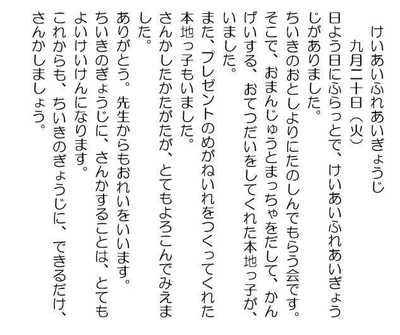 けいあいふれあいぎょうじ
九月二十日（火）
日よう日にふらっとで、けいあいふれあいぎょう
じがありました。
ちいきのおとしよりにたのしんでもらう会です。
そこで、おまんじゅうとまっちゃをだして、かん
げいする、おてつだいをしてくれた本地っ子が、
いました。
また、プレゼントのめがねいれをつくってくれた
本地っ子もいました。
さんかしたかたがたが、とてもよろこんでみえま
した。
ありがとう。先生からもおれいをいいます。
ちいきのぎょうじに、さんかすることは、とても
よいけいけんになります。
これからも、ちいきのぎょうじに、できるだけ、
さんかしましょう。